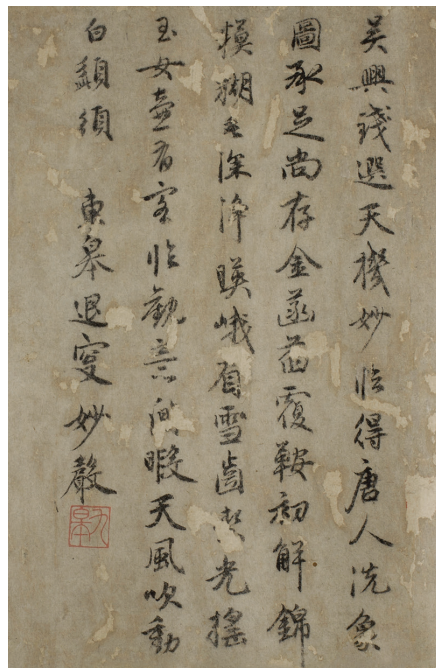 吳興錢選天機妙臨得唐人洗象
圖承足尚存金菡萏覆鞍初解錦
模糊 深淨暎峨眉雪齒 光搖
玉女壺有客臨觀意閒暇天風吹動
白顛須 東皋退叟妙嚴